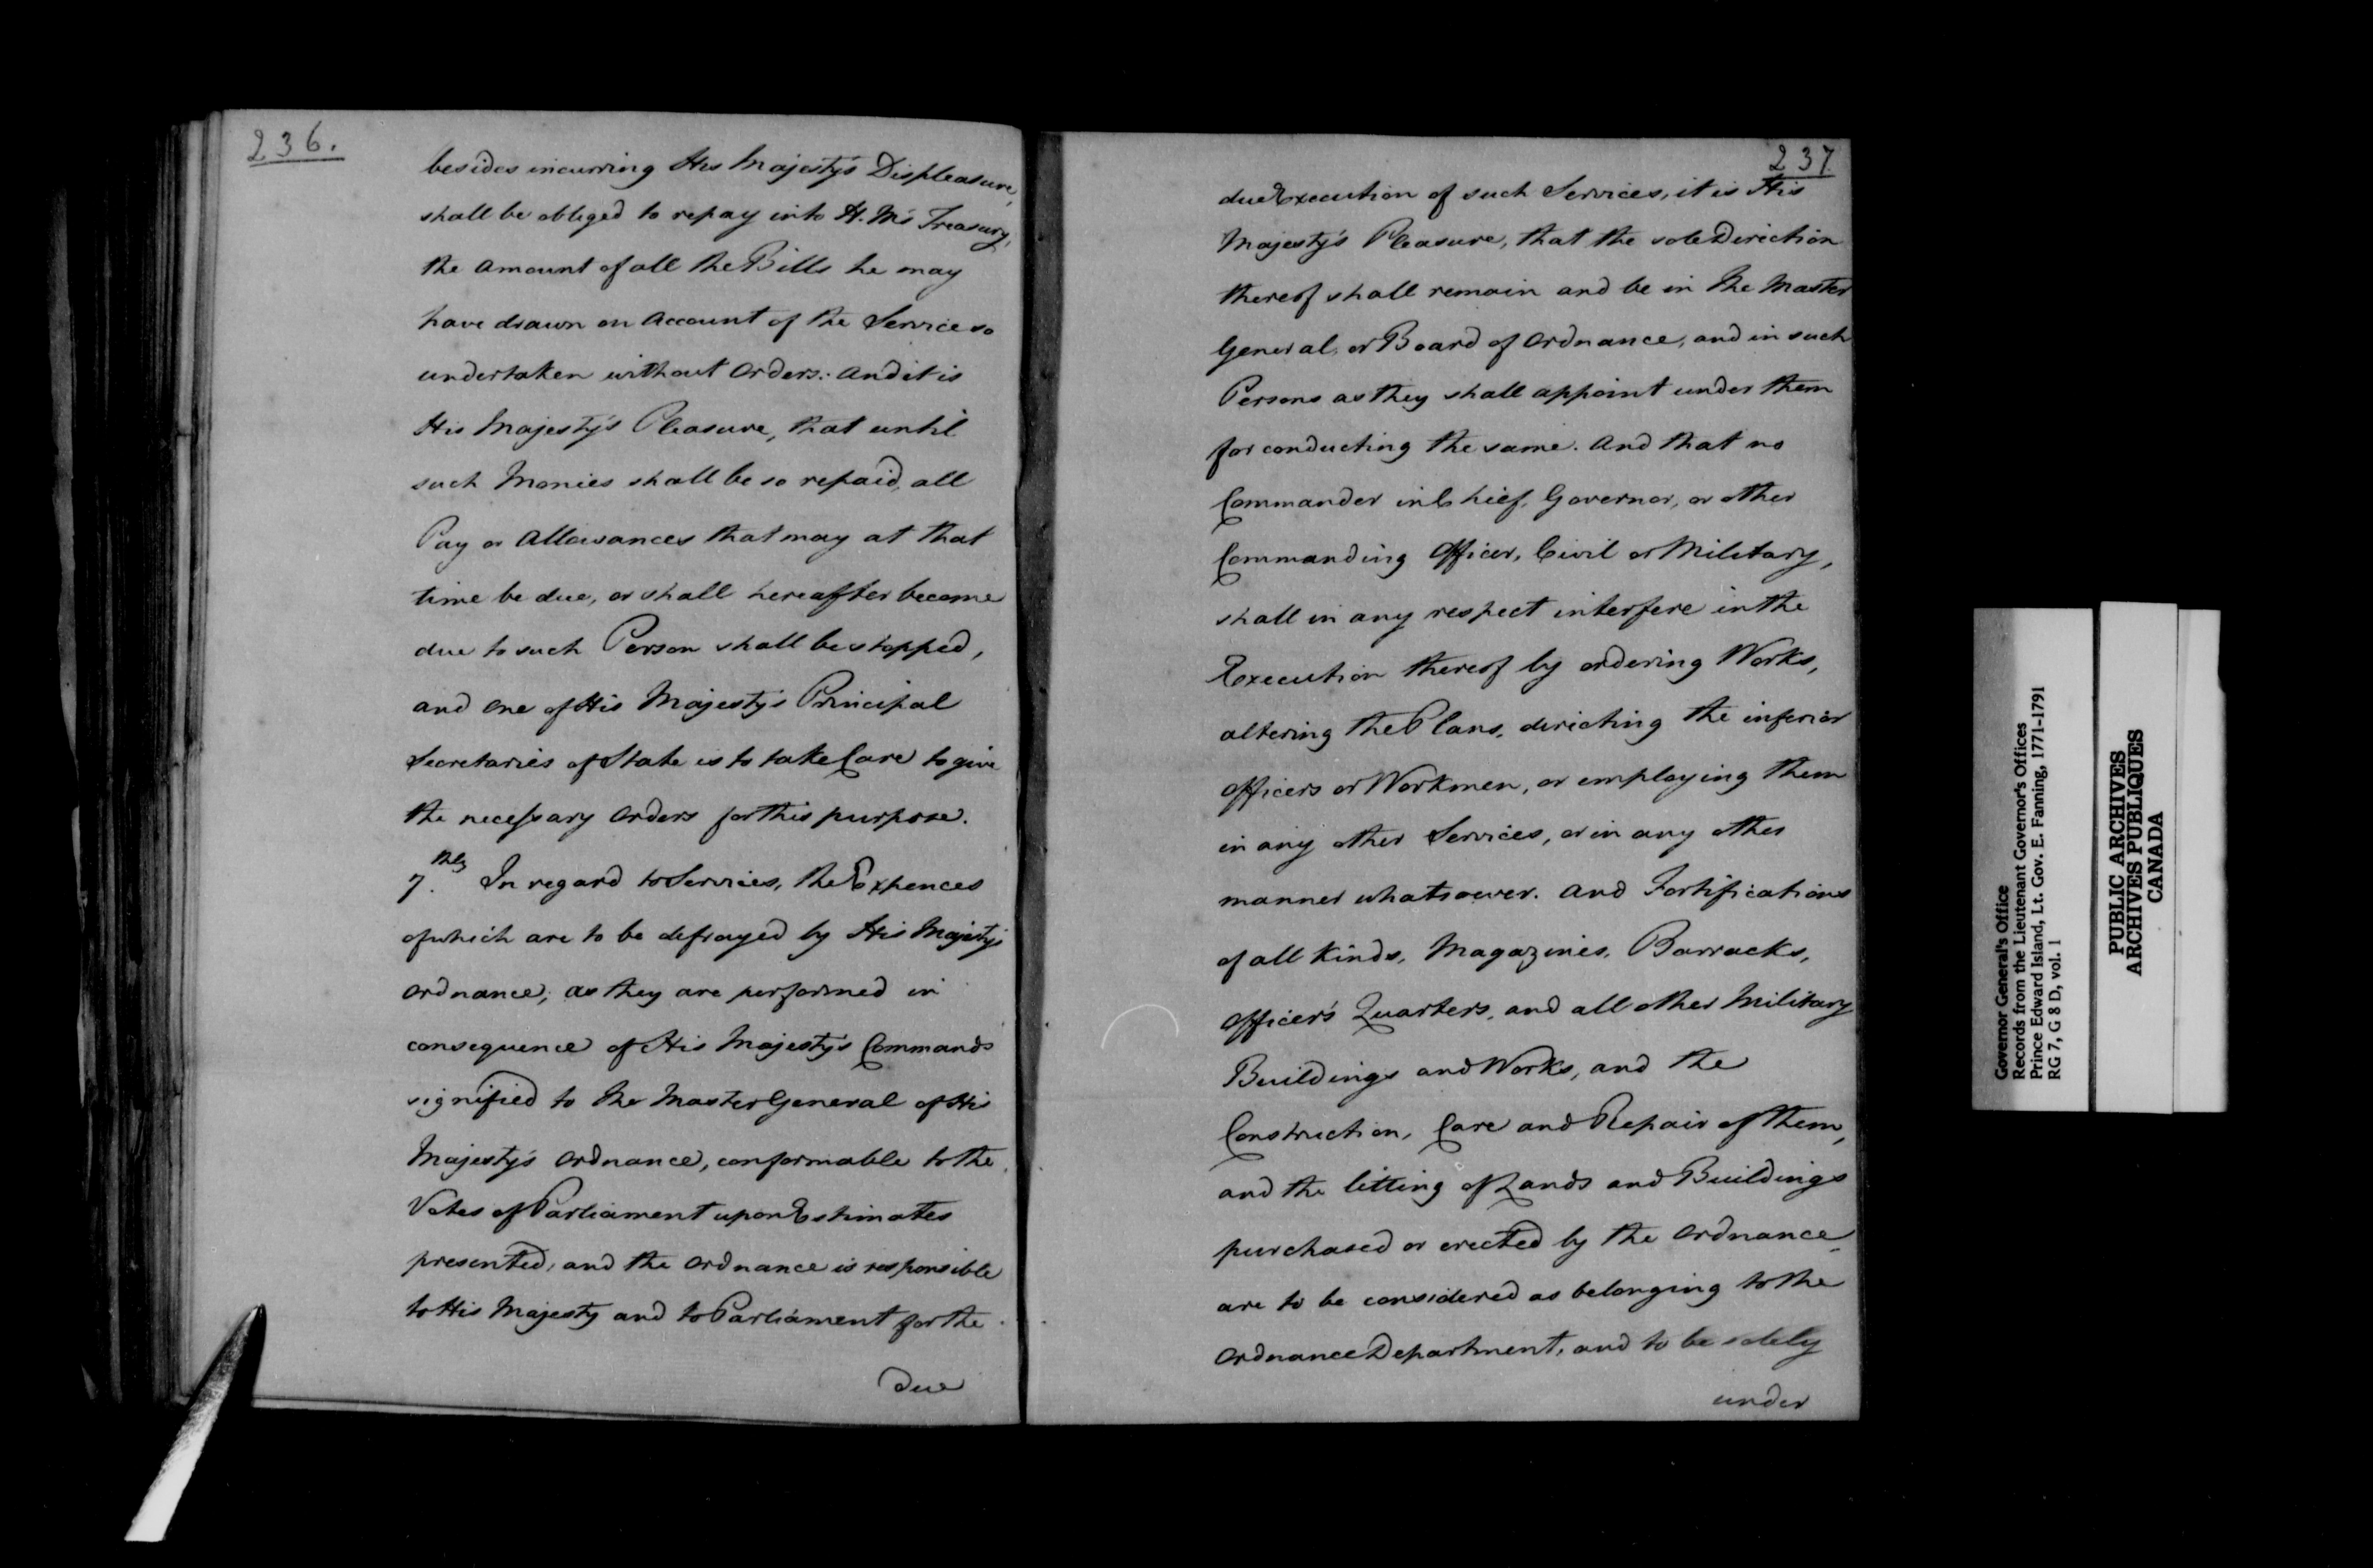 236.
besides incurring His Majesty's Displeasure,
shall be obliged to repay into H. M's Treasury,
the Amount of all the Bills he may
have drawn on Account of the Service so
undertaken without Orders: And it is
His Majesty's Pleasure, that until
such Monies shall be so repaid, all
Pay or Allowances that may at that
time be due, or shall hereafter become
due to such Person shall be stopped,
and One of His Majesty's Principal
Secretaries of State is to take Care to give
the necessary Orders for this purpose.
7.thly In regard to Services, the Expences
of which are to be defrayed by His Majesty's
Ordnance; as they are performed in
consequence of His Majesty's Commands
signified to the Master General of His
Majesty's Ordnance, conformable to the
Votes of Parliament upon Estimates
presented, and the Ordnance is responsible
to His Majesty and to Parliament for the
due
237.
due Execution of such Services, it is His
Majesty's Pleasure, that the sole Direction
thereof shall remain and be in the Master
General, or Board of Ordnance, and in such
Persons as they shall appoint under them
for conducting the same. And that no
Commander in Chief, Governor, or other
Commanding Officer, Civil or Military,
shall in any respect interfere in the
Execution thereof by ordering Works,
altering the Plans, directing the inferior
Officers or Workmen, or employing them
in any other Services, or in any other
manner whatsoever. And Fortifications
of all Kinds, Magazines, Barracks,
Officer's Quarters, and all other Military
Buildings and Works, and the
Construction, Care and Repair of them,
and the letting of Lands and Buildings
purchased or erected by the Ordnance,
are to be considered as belonging to the
Ordnance Department, and to be solely
under
Governor General's Office
Records from the Lieutenant Governor's Offices
Prince Edward Island, Lt. Gov. E. Fanning, 1771-1791
RG 7, G 8 D, vol. 1
PUBLIC ARCHIVES
ARCHIVES PUBLIQUES
CANADA